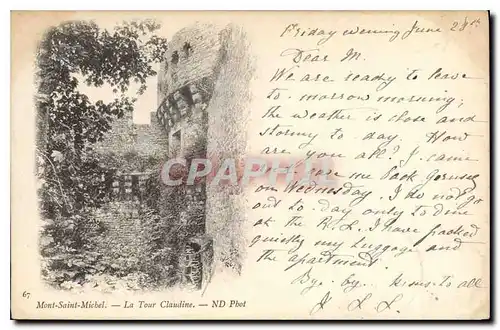 Friday evening June 28th
Dear M.
We are ready to leave
to-morrow morning;
the weather is close and
stormy to-day. How
are you all? I came
back
on Wednesday. I do not go
out to-day only to dine
at the R.L. I have packed
quickly my luggage and
the apartment.
Bye. by. to all
J. L. L.
CPA
67
Mont-Saint-Michel. — La Tour Claudine. — ND Phot